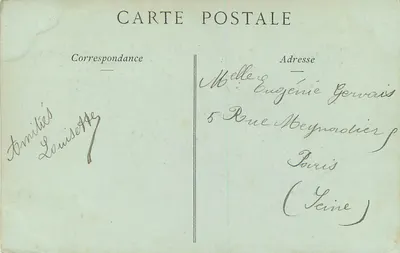 CARTE POSTALE
Correspondance
Adresse
Amitiés
Louisette
Melle Eugénie Gervais
5 Rue Meynardier
Paris
(Seine)